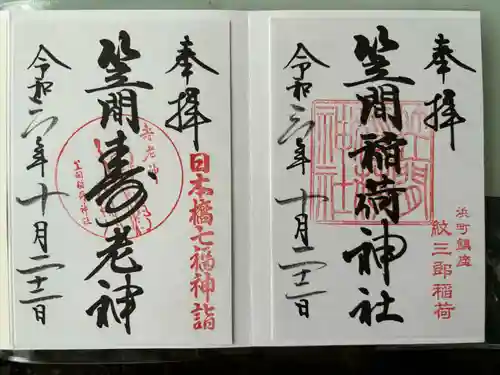 奉拝
浜町鎮座
紋三郎稲荷
笠間稲荷神社
令和六年十月二十二日
奉拝
日本橋七福神詣
笠間寿老神
寿老神
笠間稲荷神社
令和六年十月二十二日